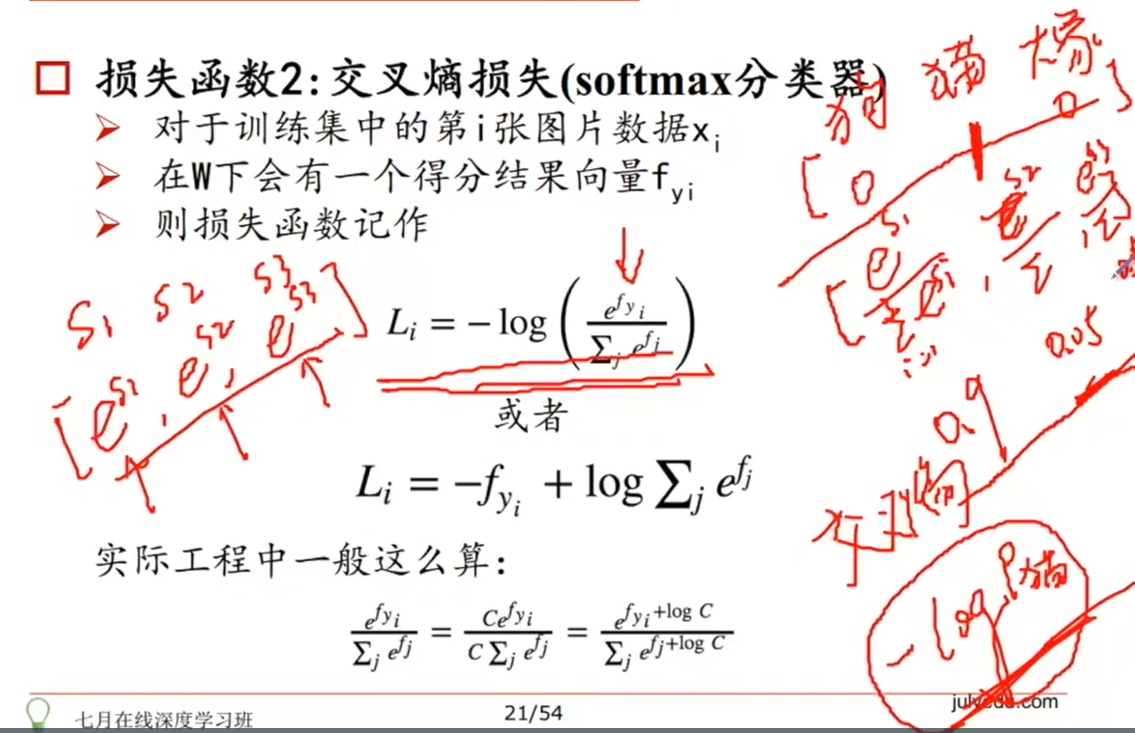 损失函数2:交叉熵损失(softmax分类器)
对于训练集中的第i张图片数据x_i
在W下会有一个得分结果向量f_yi
则损失函数记作
狗 猫 大象
[0 1 0]
s1 s2 s3
[e^s1, e^s2, e^s3]
L_i = −log(e^{f_{y_i}} / ∑_j e^{f_j})
或者
L_i = −f_{y_i} + log ∑_j e^{f_j}
0.05
0.9
交叉熵
−log P猫
实际工程中一般这么算:
e^{f_{y_i}} / ∑_j e^{f_j} = Ce^{f_{y_i}} / C∑_j e^{f_j} = e^{f_{y_i}+log C} / ∑_j e^{f_j+log C}
七月在线深度学习班
21/54
julyedu.com